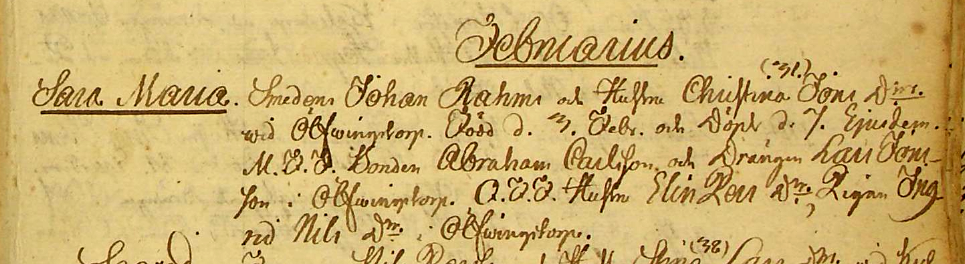 Februarius.
(31.)
Sara Maria. Smedens Johan Rahms och Hustru Christina Jons Dr.
wid Olfwingstorp. Född d. 3. Febr. och döpt d. 7. Ejusdem.
M.V.T. Bonden Abraham Carlsson och Drängen Lars Jons-
son i Olfwingstorp. Q.V.T. Hustru Elin Pers Dr. Pigan Ing-
rid Nils Dr. i Olfwingstorp.
(38)